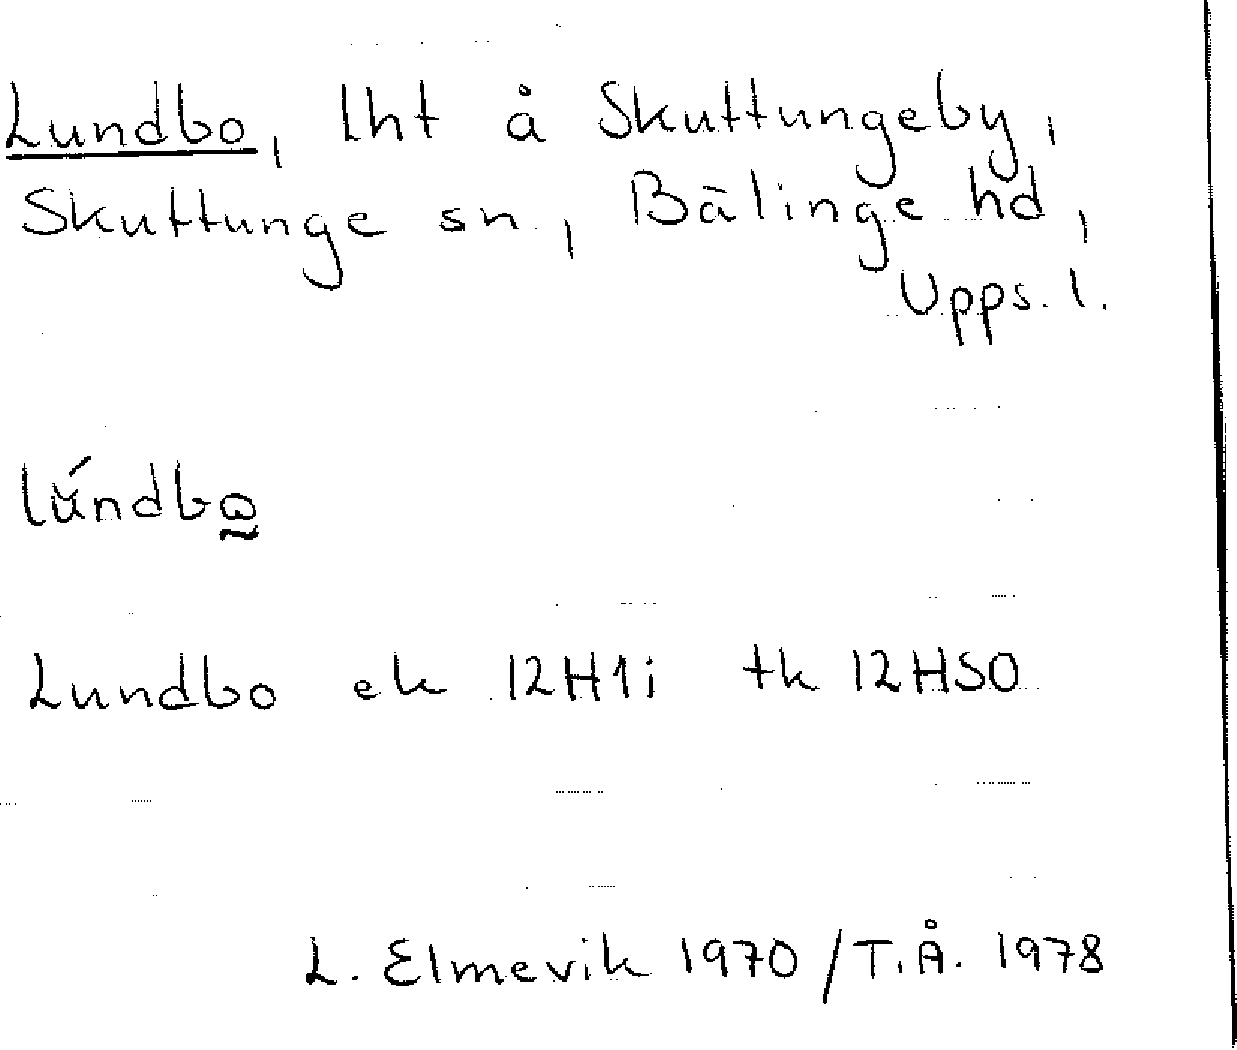 Lundbo, lht å Skuttungeby,
Skuttunge sn, Bälinge hd,
Upps. l.
lúndbo
Lundbo ek 12H1i tk 12HSO
L. Elmevik 1970 / T.Å. 1978